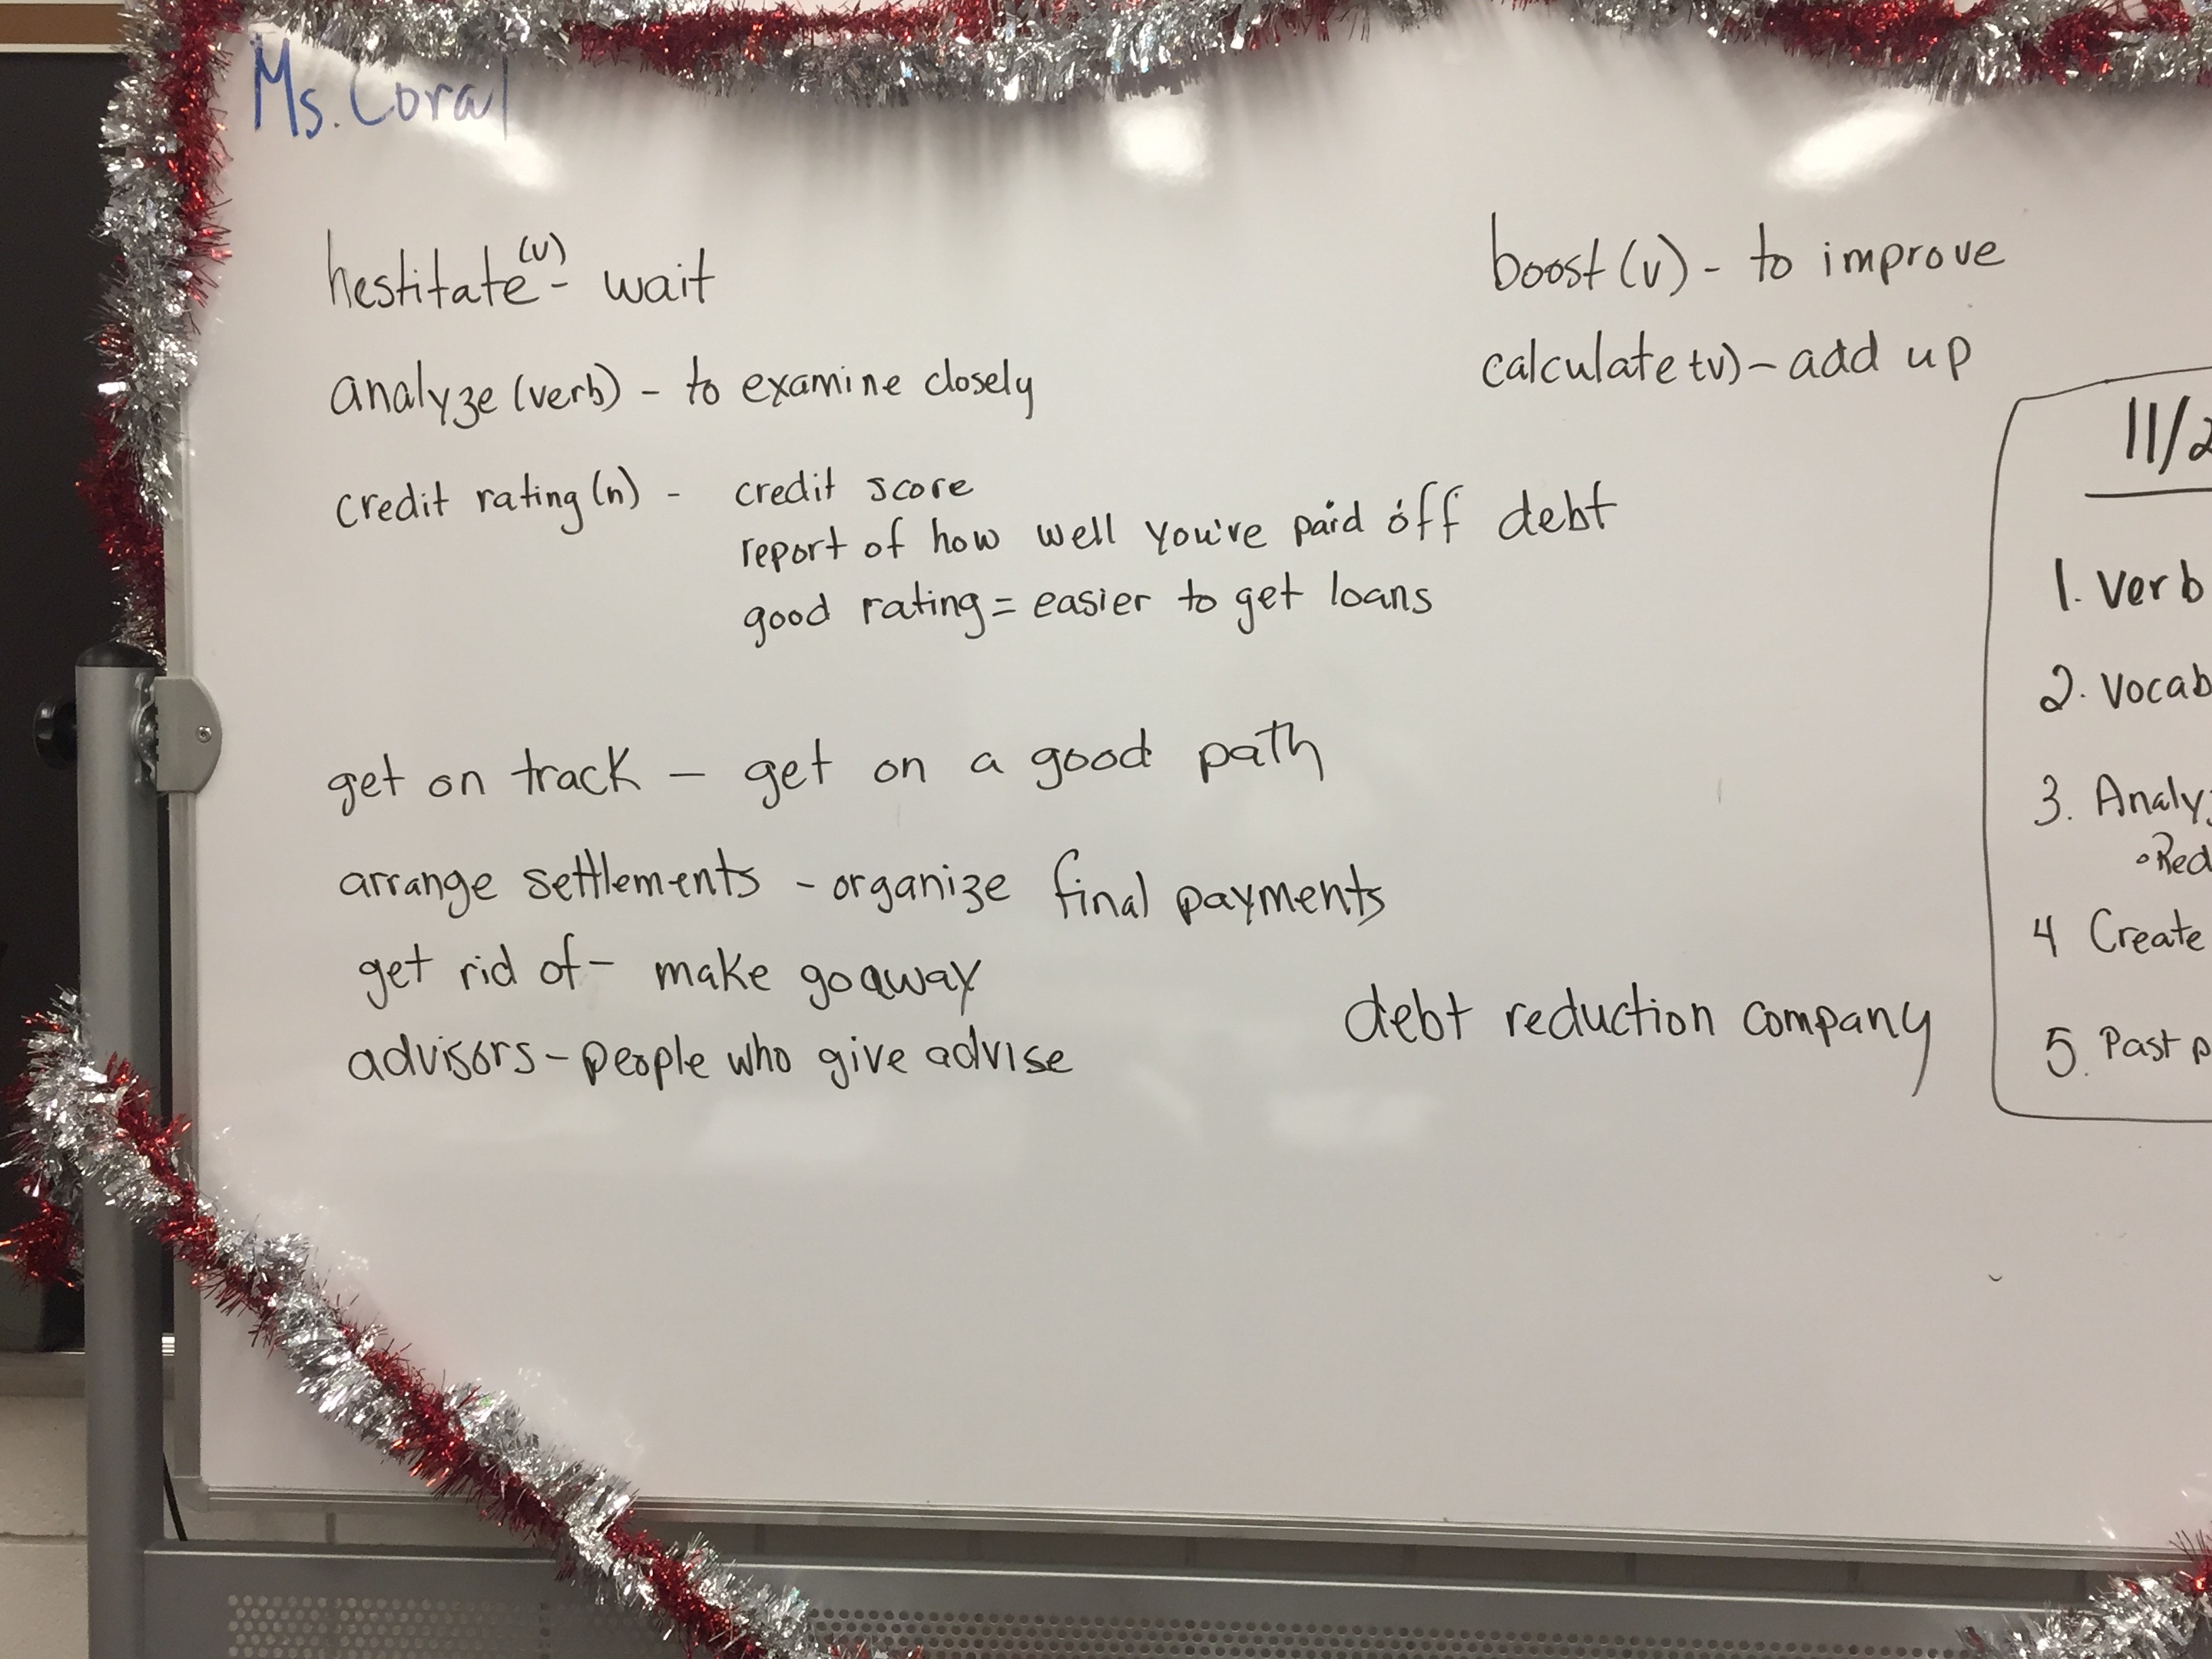 Ms. Coral
hestitate (v) - wait
analyze (verb) - to examine closely
credit rating (n) - credit score
report of how well you've paid off debt
good rating = easier to get loans
get on track - get on a good path
arrange settlements - organize final payments
get rid of - make go away
advisors - people who give advise
boost (v) - to improve
calculate (v) - add up
debt reduction company
11/2
1. Verb
2. Vocab
3. Analy
• Red
4 Create
5. Past p